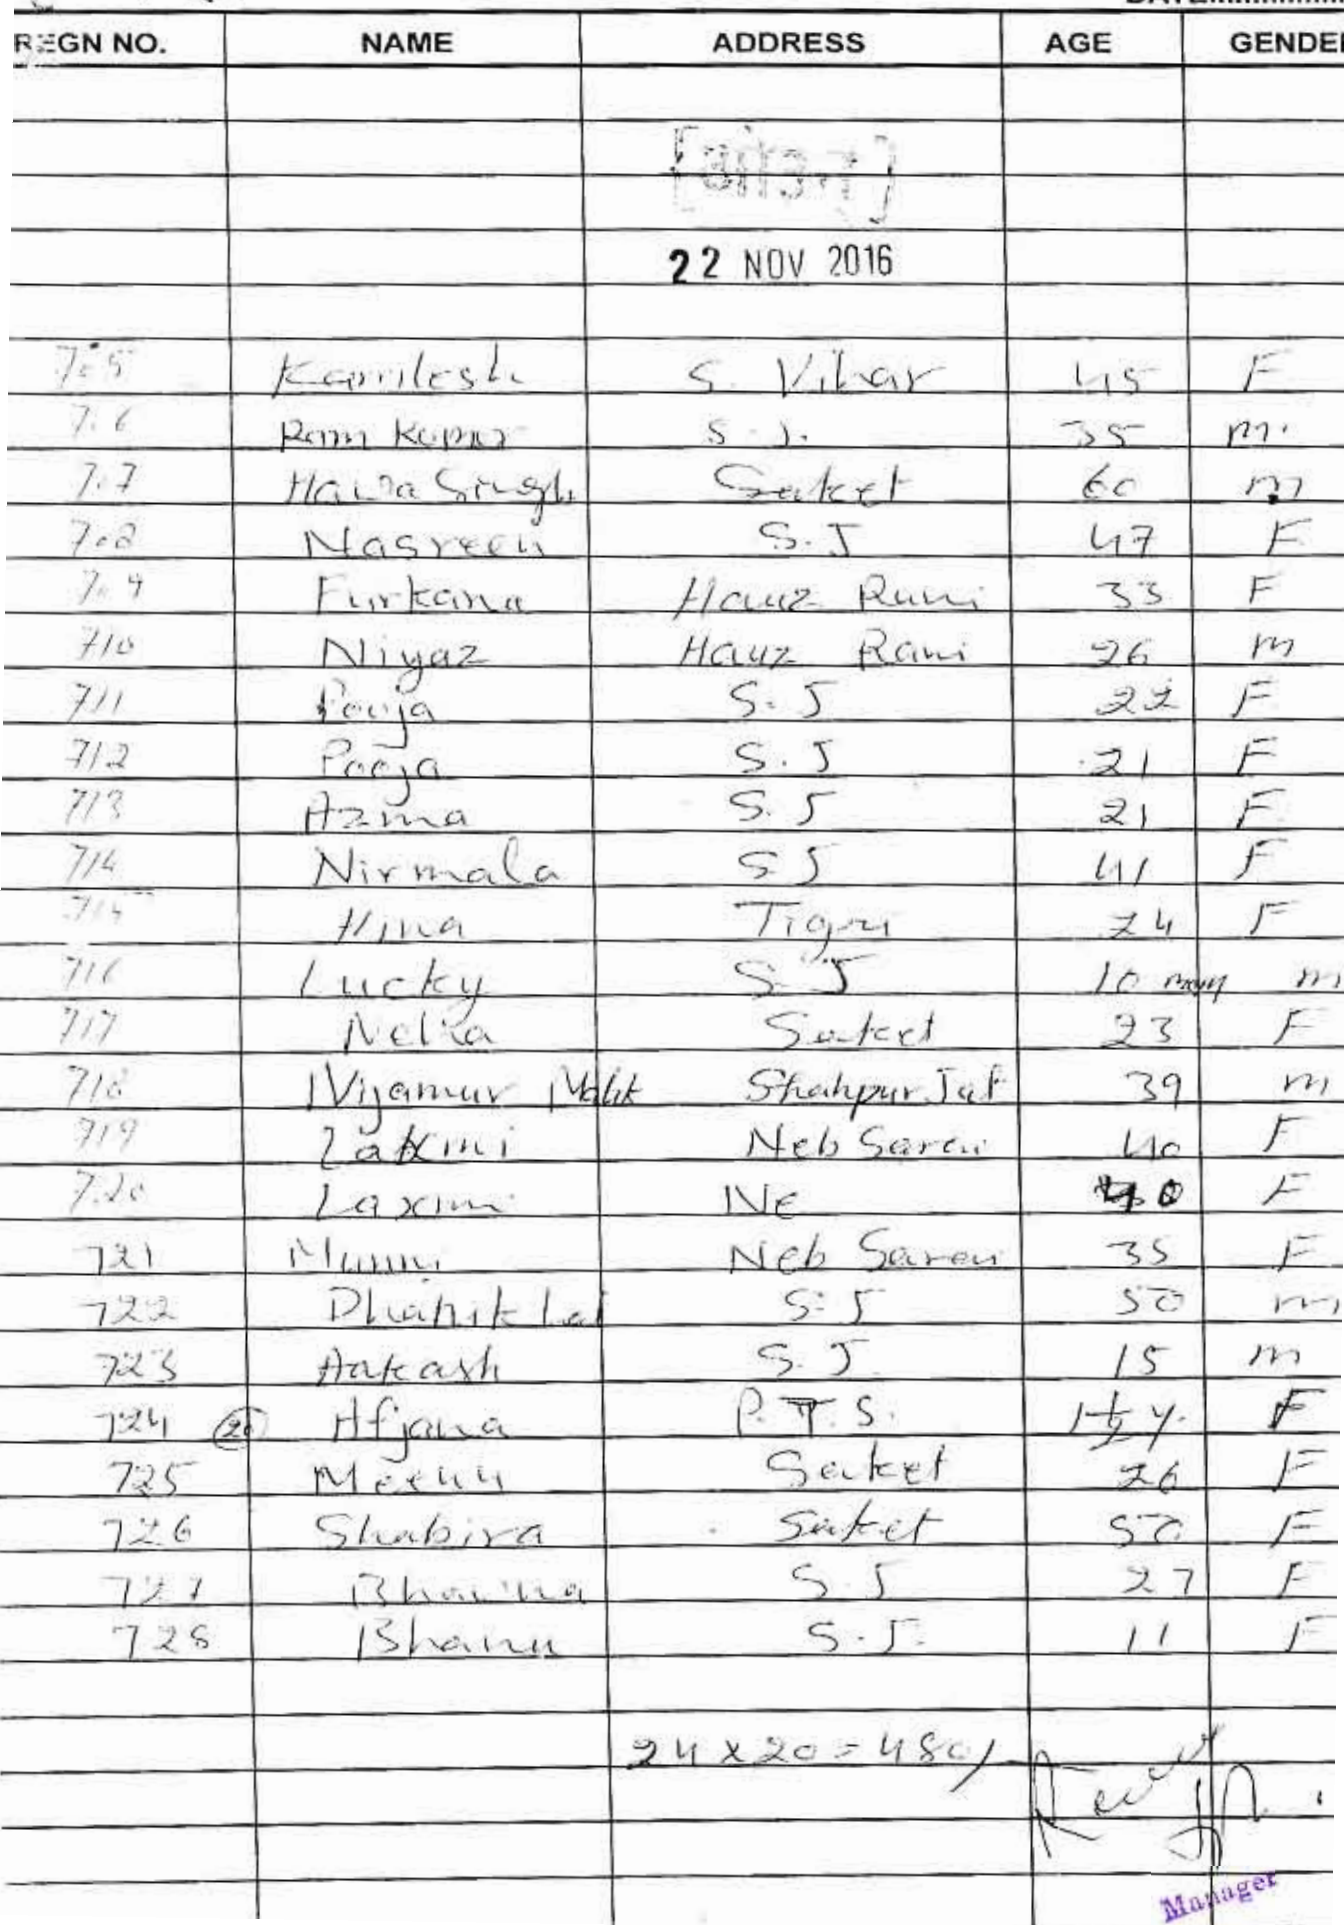 REGN NO. NAME ADDRESS AGE GENDER
22 NOV 2016
705 Kamlesh S. Vihar 45 F
706 Ram Kumar S.J. 35 m.
707 Hawa Singh Saket 60 m
708 Nasreen S.J 47 F
709 Furkana Hauz Rani 33 F
710 Niyaz Hauz Rani 26 m
711 Pooja S.J 22 F
712 Pooja S.J 21 F
713 Azma S.J 21 F
714 Nirmala S J 41 F
715 Hina Tigri 24 F
716 Lucky S J 10 m
717 Neha Saket 23 F
718 Nijamur Malik Shahpur Jat 39 m
719 Laxmi Neb Sarai 40 F
720 Laxmi Ne 40 F
721 Munni Neb Sarai 35 F
722 Dhanik Lal S.J 50 m
723 Aakash S.J. 15 m
724 20 Afjana P.T.S. 1½ y. F
725 Meenu Saket 26 F
726 Shabira Saket 50 F
727 Bhawna S.J 27 F
728 Bhanu S.J. 11 F
24 x 20 = 480/
Manager